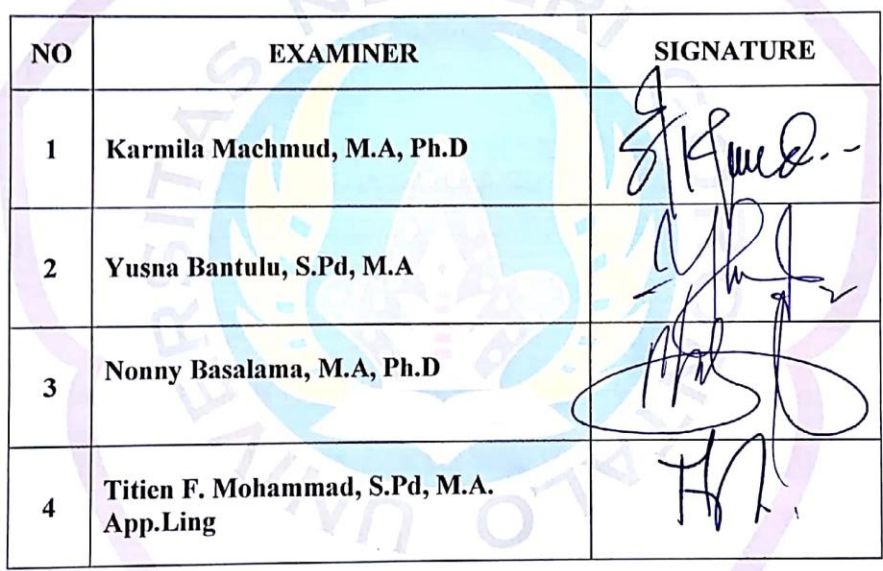 NO EXAMINER SIGNATURE
1 Karmila Machmud, M.A, Ph.D
2 Yusna Bantulu, S.Pd, M.A
3 Nonny Basalama, M.A, Ph.D
4 Titien F. Mohammad, S.Pd, M.A.
App.Ling